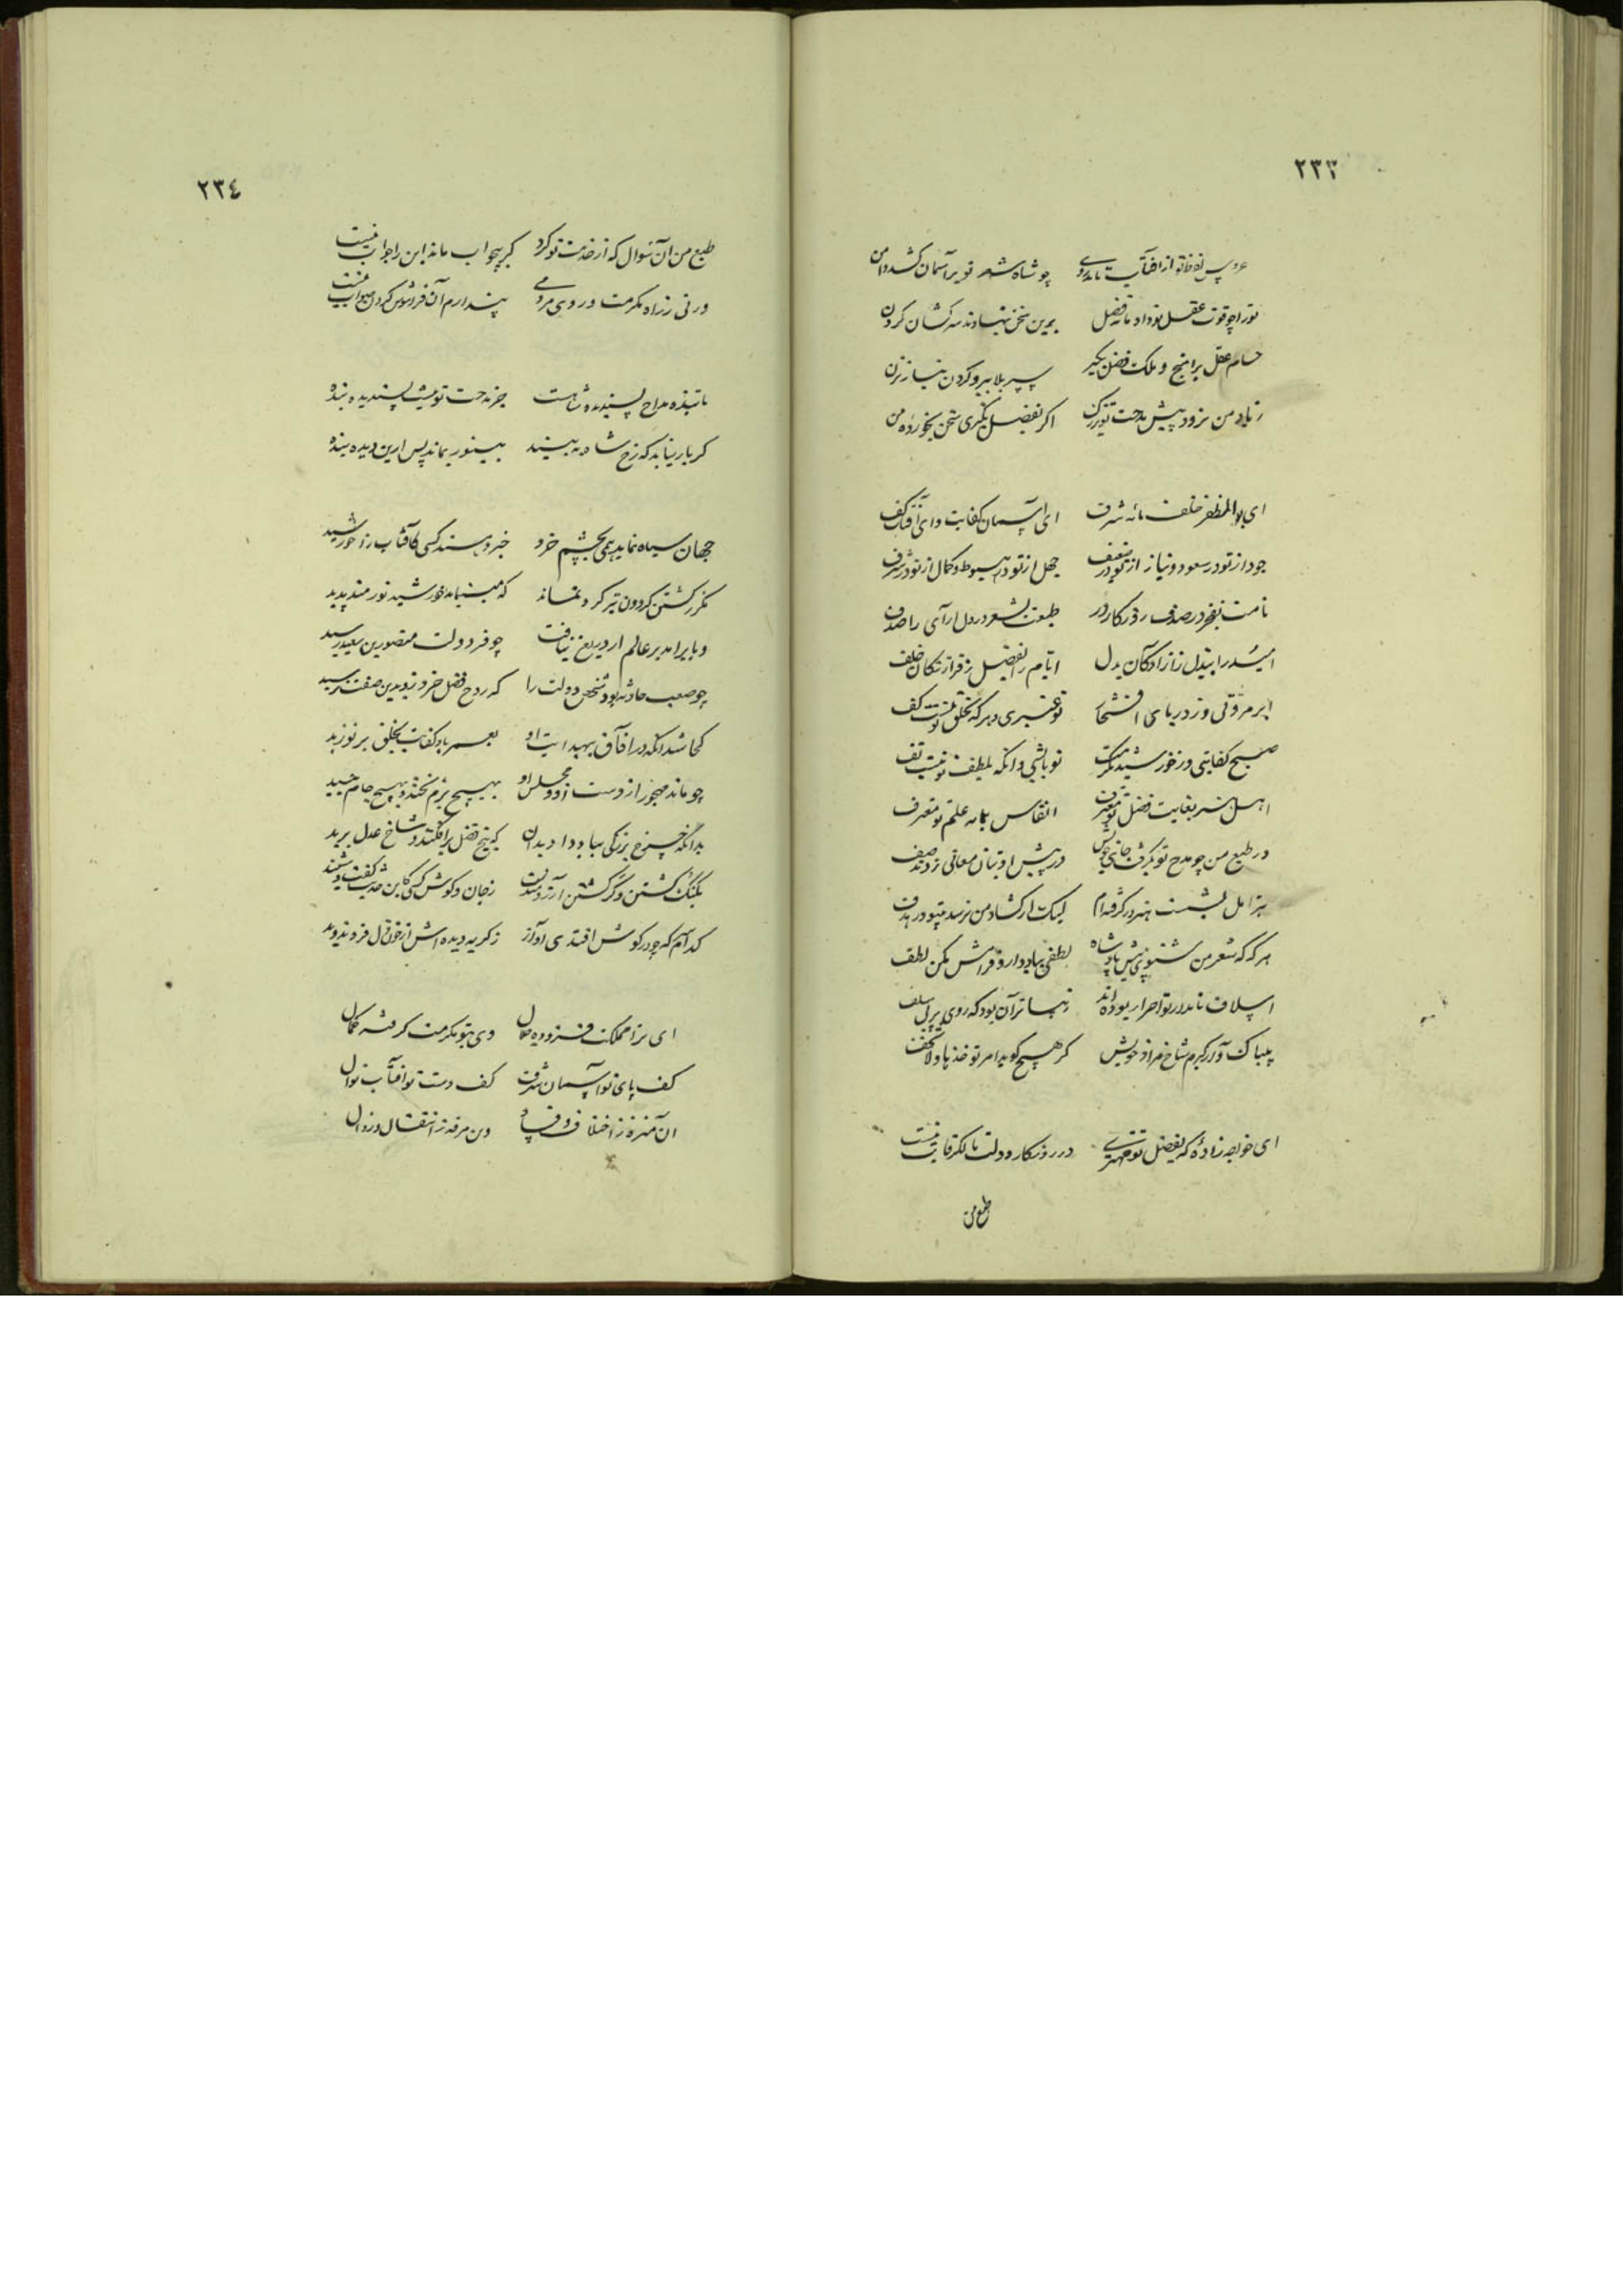 ٢٣٣
عروس لفظ تو از آفتاب تابد روی چو شاه شعر تو بر آسمان کشد دامن
تو را چو قوت عقل تو داد مایه فضل برین سخن بنهادند سرکشان گردن
حسام عقل برآهنج و ملکت فضل بگیر سپر بلا ببر و گردن نیاز بزن
زیاد من نرود پیش مدحت تو اگر بفضل بنگری سخن
ای بوالمظفر خلف مایه شرف ای آسمان کفایت و ای آفتاب کف
جود از تو در سعود و نیاز از تو در ضعف جهل از تو در هبوط و کمال از تو در شرف
نامت بفخر در صدف روزگار در طبعت بشعر در دل آرای را صدف
امید را ببذل ز آزادگان بدل ایام را بفضل ز خلف
ابر مروتی و ز دریای افتخار تو عنبری و هر که بخلق تو نیست کف
صبح کفایتی و ز خورشید مکرمت تو تابشی و آنکه بلطف تو نیست تف
اهل هنر بغایت فضل تو معترف انفاس ما به علم تو معترف
در طبع من چو مدح تو بگرفت جای خویش در پیش او بتان معانی زدند صف
تیر امل بشست هنر در گرفته‌ام لیکن از گشاد من نرسد بیتو در هدف
هر گه که شعر من شنوی پیش پادشاه لطفی بیاد دار و فرامش مکن لطف
اسلاف نامدار تو احرار بوده‌اند زیباتر آن بود که روی بر پی سلف
بیباک آور بر شاخ مراد خویش گر هیچ گوید امر تو خذها و لا تخف
ای خواجه زاده‌ای که بفضل تو مهتری در روزگار دولت مالک رقاب نیست
طبع من
٢٣٤
طبع من آن سوال که از خدمت تو کرد گر بیجواب ماند این را جواب نیست
ور نی ز راه مکرمت و روی مردمی پندارم آن فراموش کردن صواب نیست
تا بنده مداح پسندیده شاهست جز مدحت تو نیست پسندیده بنده
گر بار نیابد که رخ شاه نبیند بی نور بماند پس ازین دیده بنده
جهان سیاه نماید همی بچشم خرد خبر دهند کسی کافتاب را چه رسید
مگر ز گشتن گردون تیر گرد نماند که می‌نیاید خورشید نورمند پدید
و یا برامد بر عالم ار دریغ نیافت چو فر دولت منصور بن سعید رسید
چو صعب حادثه بود شخص دولت را که روح فضل خرد زو بدین صفت برسید
کجا شد آنکه در آفاق بی هدایت او بعمر باد کفایت بخلق بر نوزید
چو ماند مهجور از دست او و مجلس او بهیچ بزم نخندد بهیچ جام نبید
بدانگه چرخ بزرگی بباد داد بدان که بیخ فضل برافکند و شاخ عدل برید
بگنگ گشتن و کر گشتن آرزومندست زبان و گوش کسی کاین حدیث گفت و شنید
کدام که چو در گوش افتدی آواز ز گریه دیده‌اش از خون دل فرو ندوید
ای ترا مملکت فزوده جلال وی بتو مکرمت گرفته کمال
کف پای تو آسمان شرف کف دست تو آفتاب نوال
آن منزه ز اختلاف و فساد وین مرفه ز انتقال و زوال